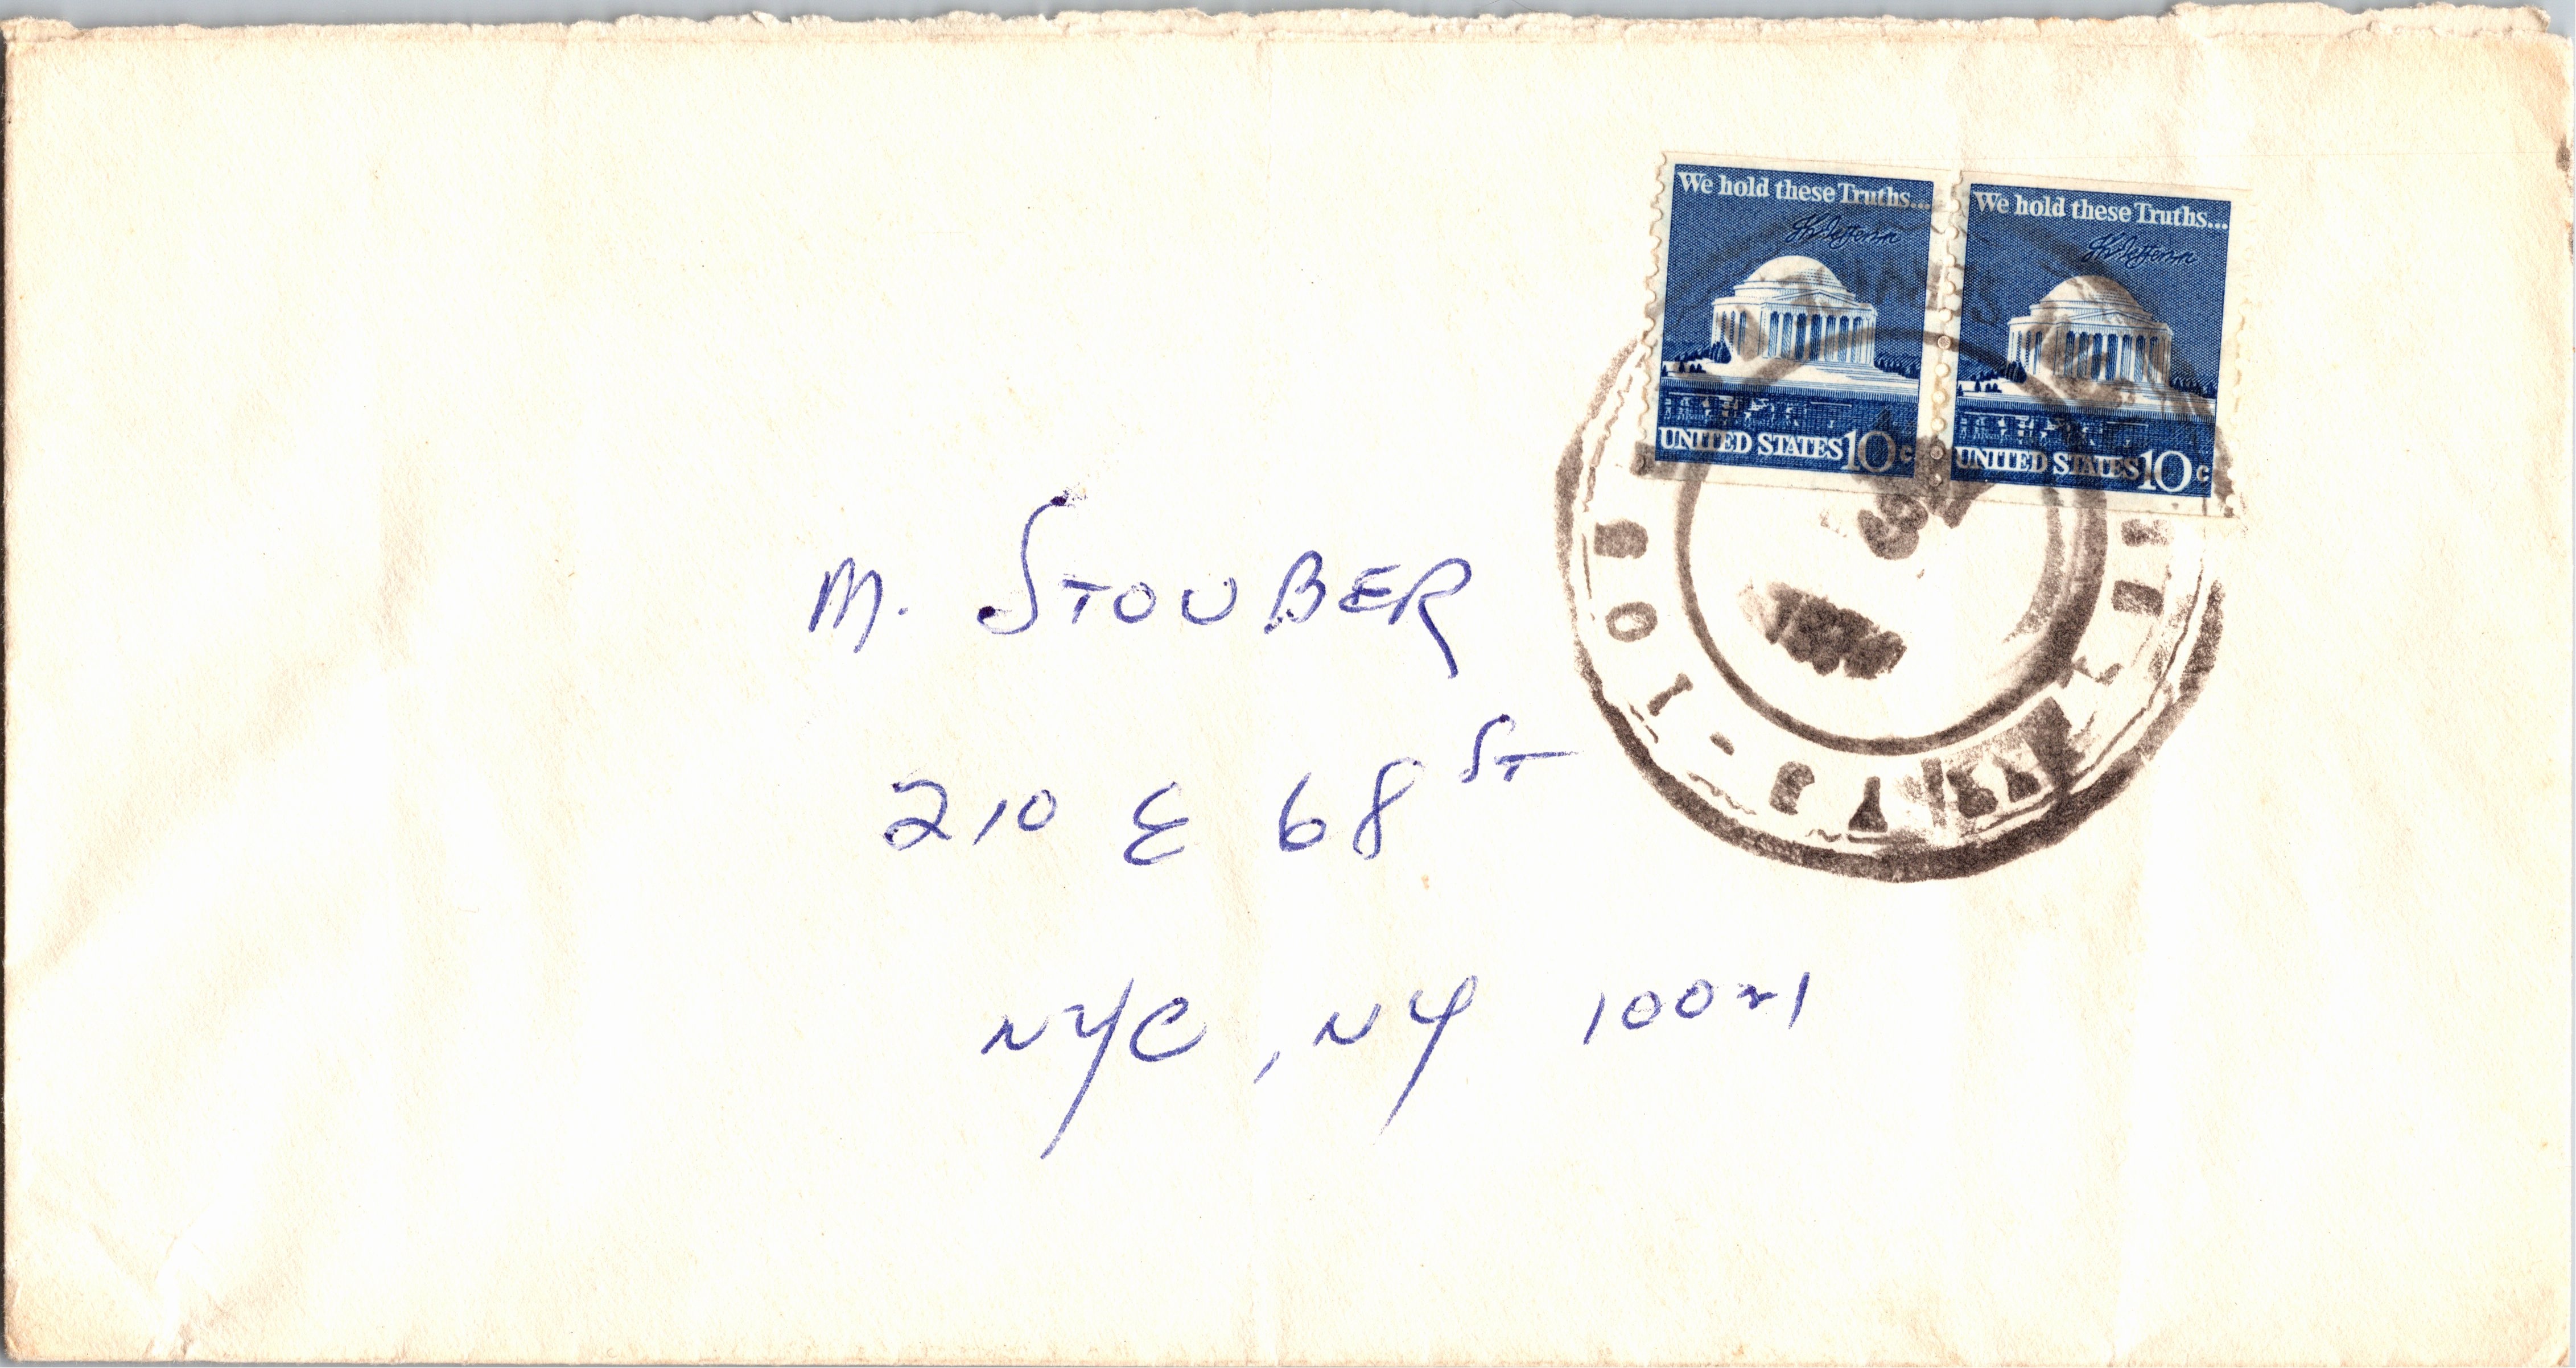 We hold these Truths...
Th Jefferson
UNITED STATES 10c
We hold these Truths...
Th Jefferson
UNITED STATES 10c
M. STOUBER
210 E 68 ST
NYC, NY 10021